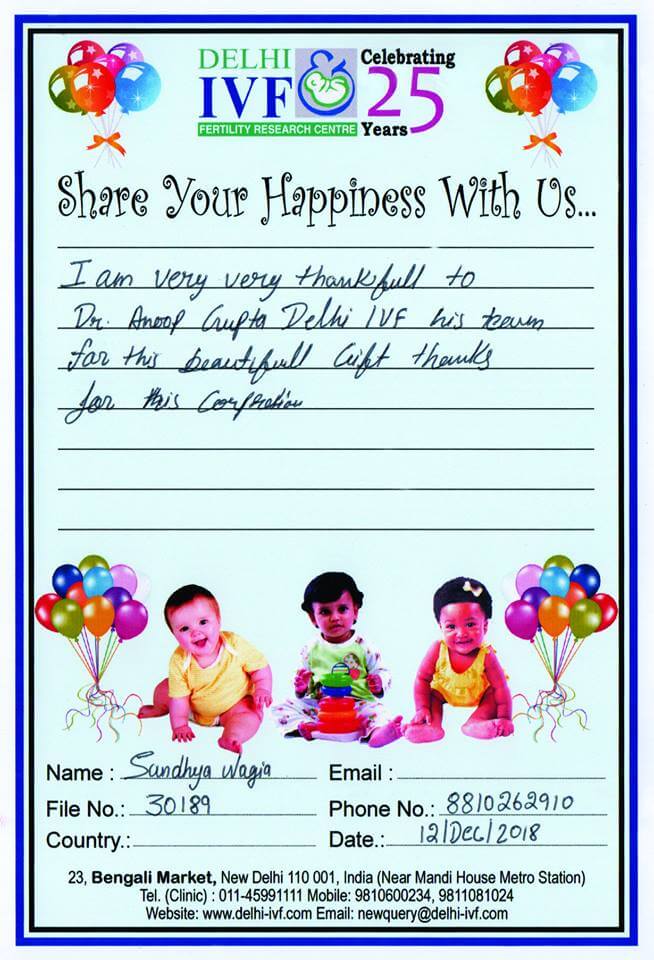 DELHI
IVF
FERTILITY RESEARCH CENTRE
Celebrating
25
Years
Share Your Happiness With Us...
I am very very thankfull to
Dr. Anoop Gupta Delhi IVF his team
for this beautifull Gift thanks
for this
Name : Sandhya Wagia Email :
File No.: 30189 Phone No.: 8810262910
Country.: Date.: 12/Dec/2018
23, Bengali Market, New Delhi 110 001, India (Near Mandi House Metro Station)
Tel. (Clinic) : 011-45991111 Mobile: 9810600234, 9811081024
Website: www.delhi-ivf.com Email: newquery@delhi-ivf.com